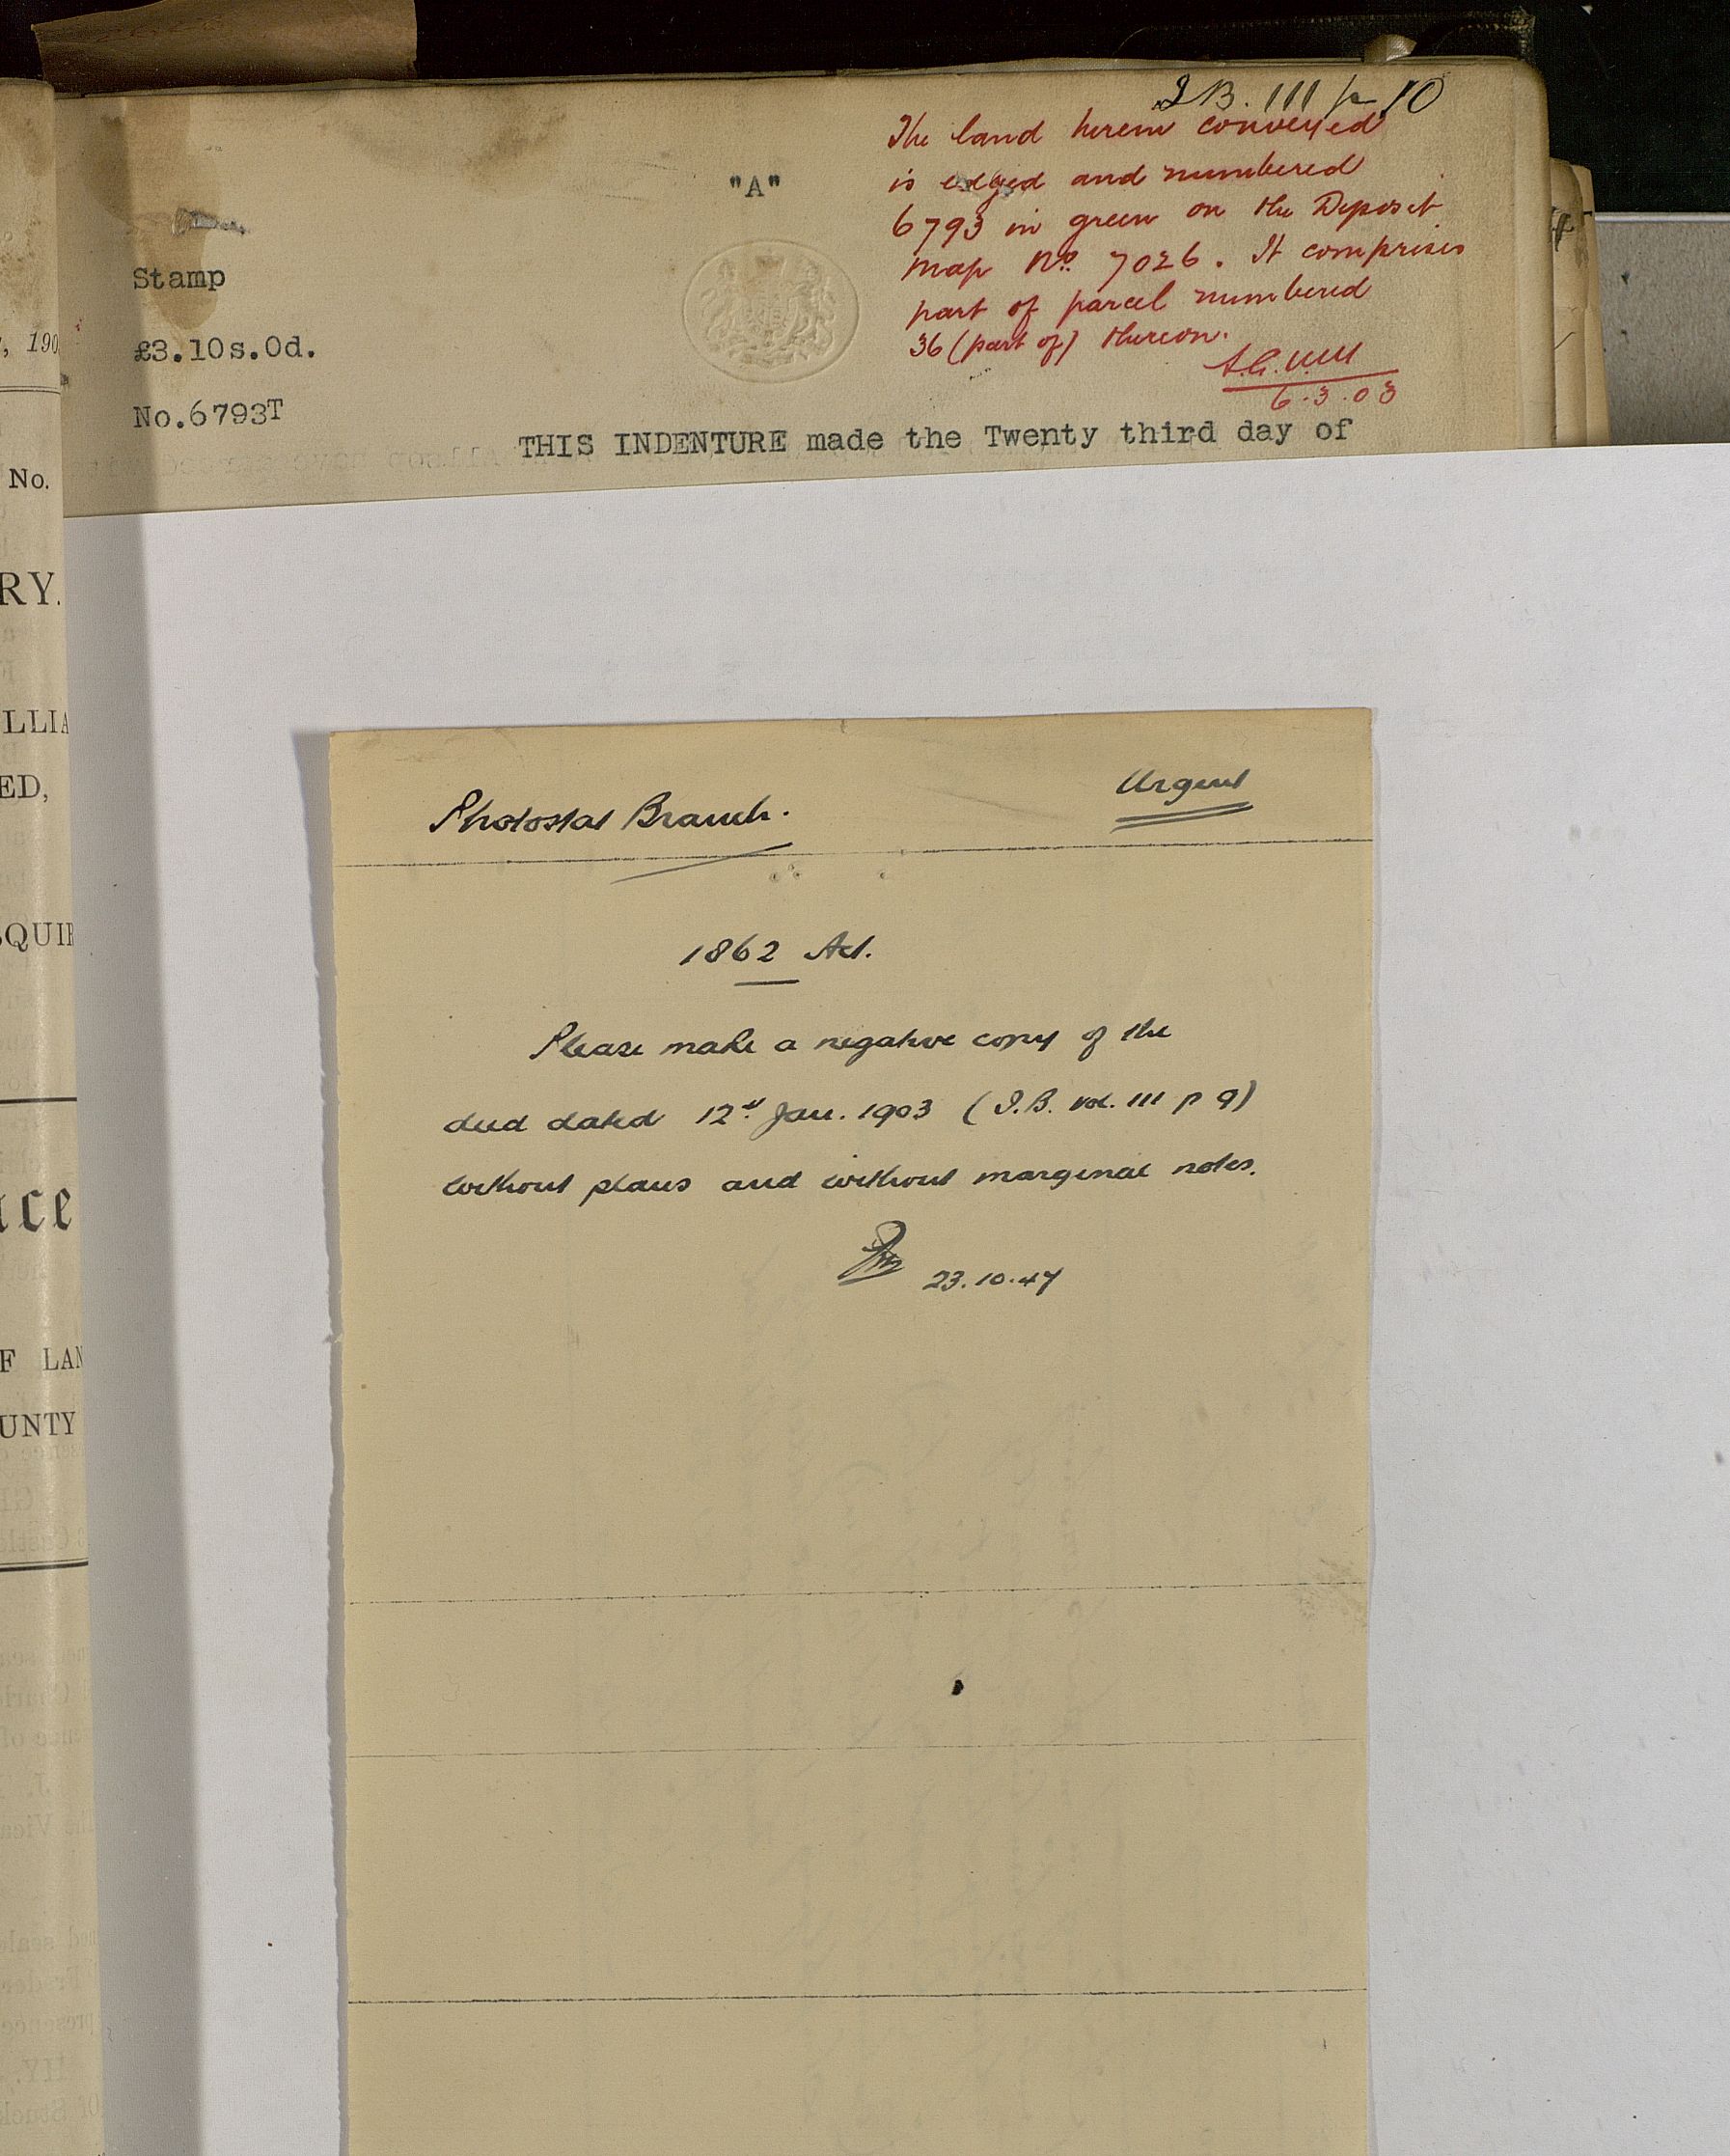 I.B. 111 p 10
The land herein conveyed
is edged and numbered
6793 in green on the Deposit
Map No. 7026. It comprises
part of parcel numbered
36 (part of) thereon.
6.3.03
"A"
Stamp
£3.10s.0d.
No.6793T
THIS INDENTURE made the Twenty third day of
, 190
No.
RY.
LLIA
ED,
QUIR
ce
F LAN
UNTY
Photostat Branch.
Urgent
1862 Act.
Please make a negative copy of the
deed dated 12th Jan. 1903 (I.B. vol. 111 p 9)
without plans and without marginal notes.
23.10.47